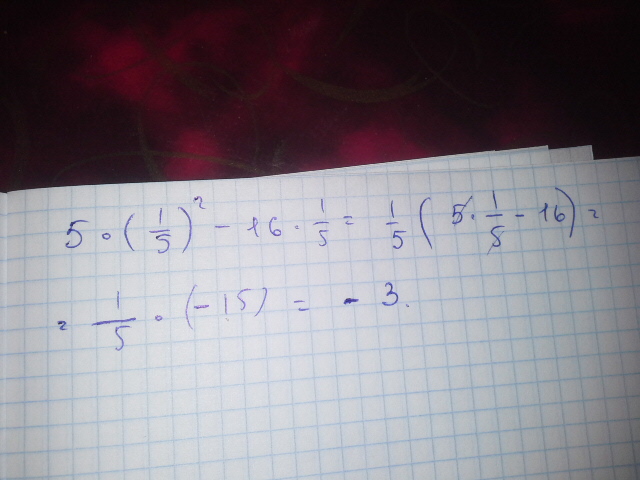 5 · (1/5)² - 16 · 1/5 = 1/5 (5 · 1/5 - 16) =
= 1/5 · (-15) = - 3.